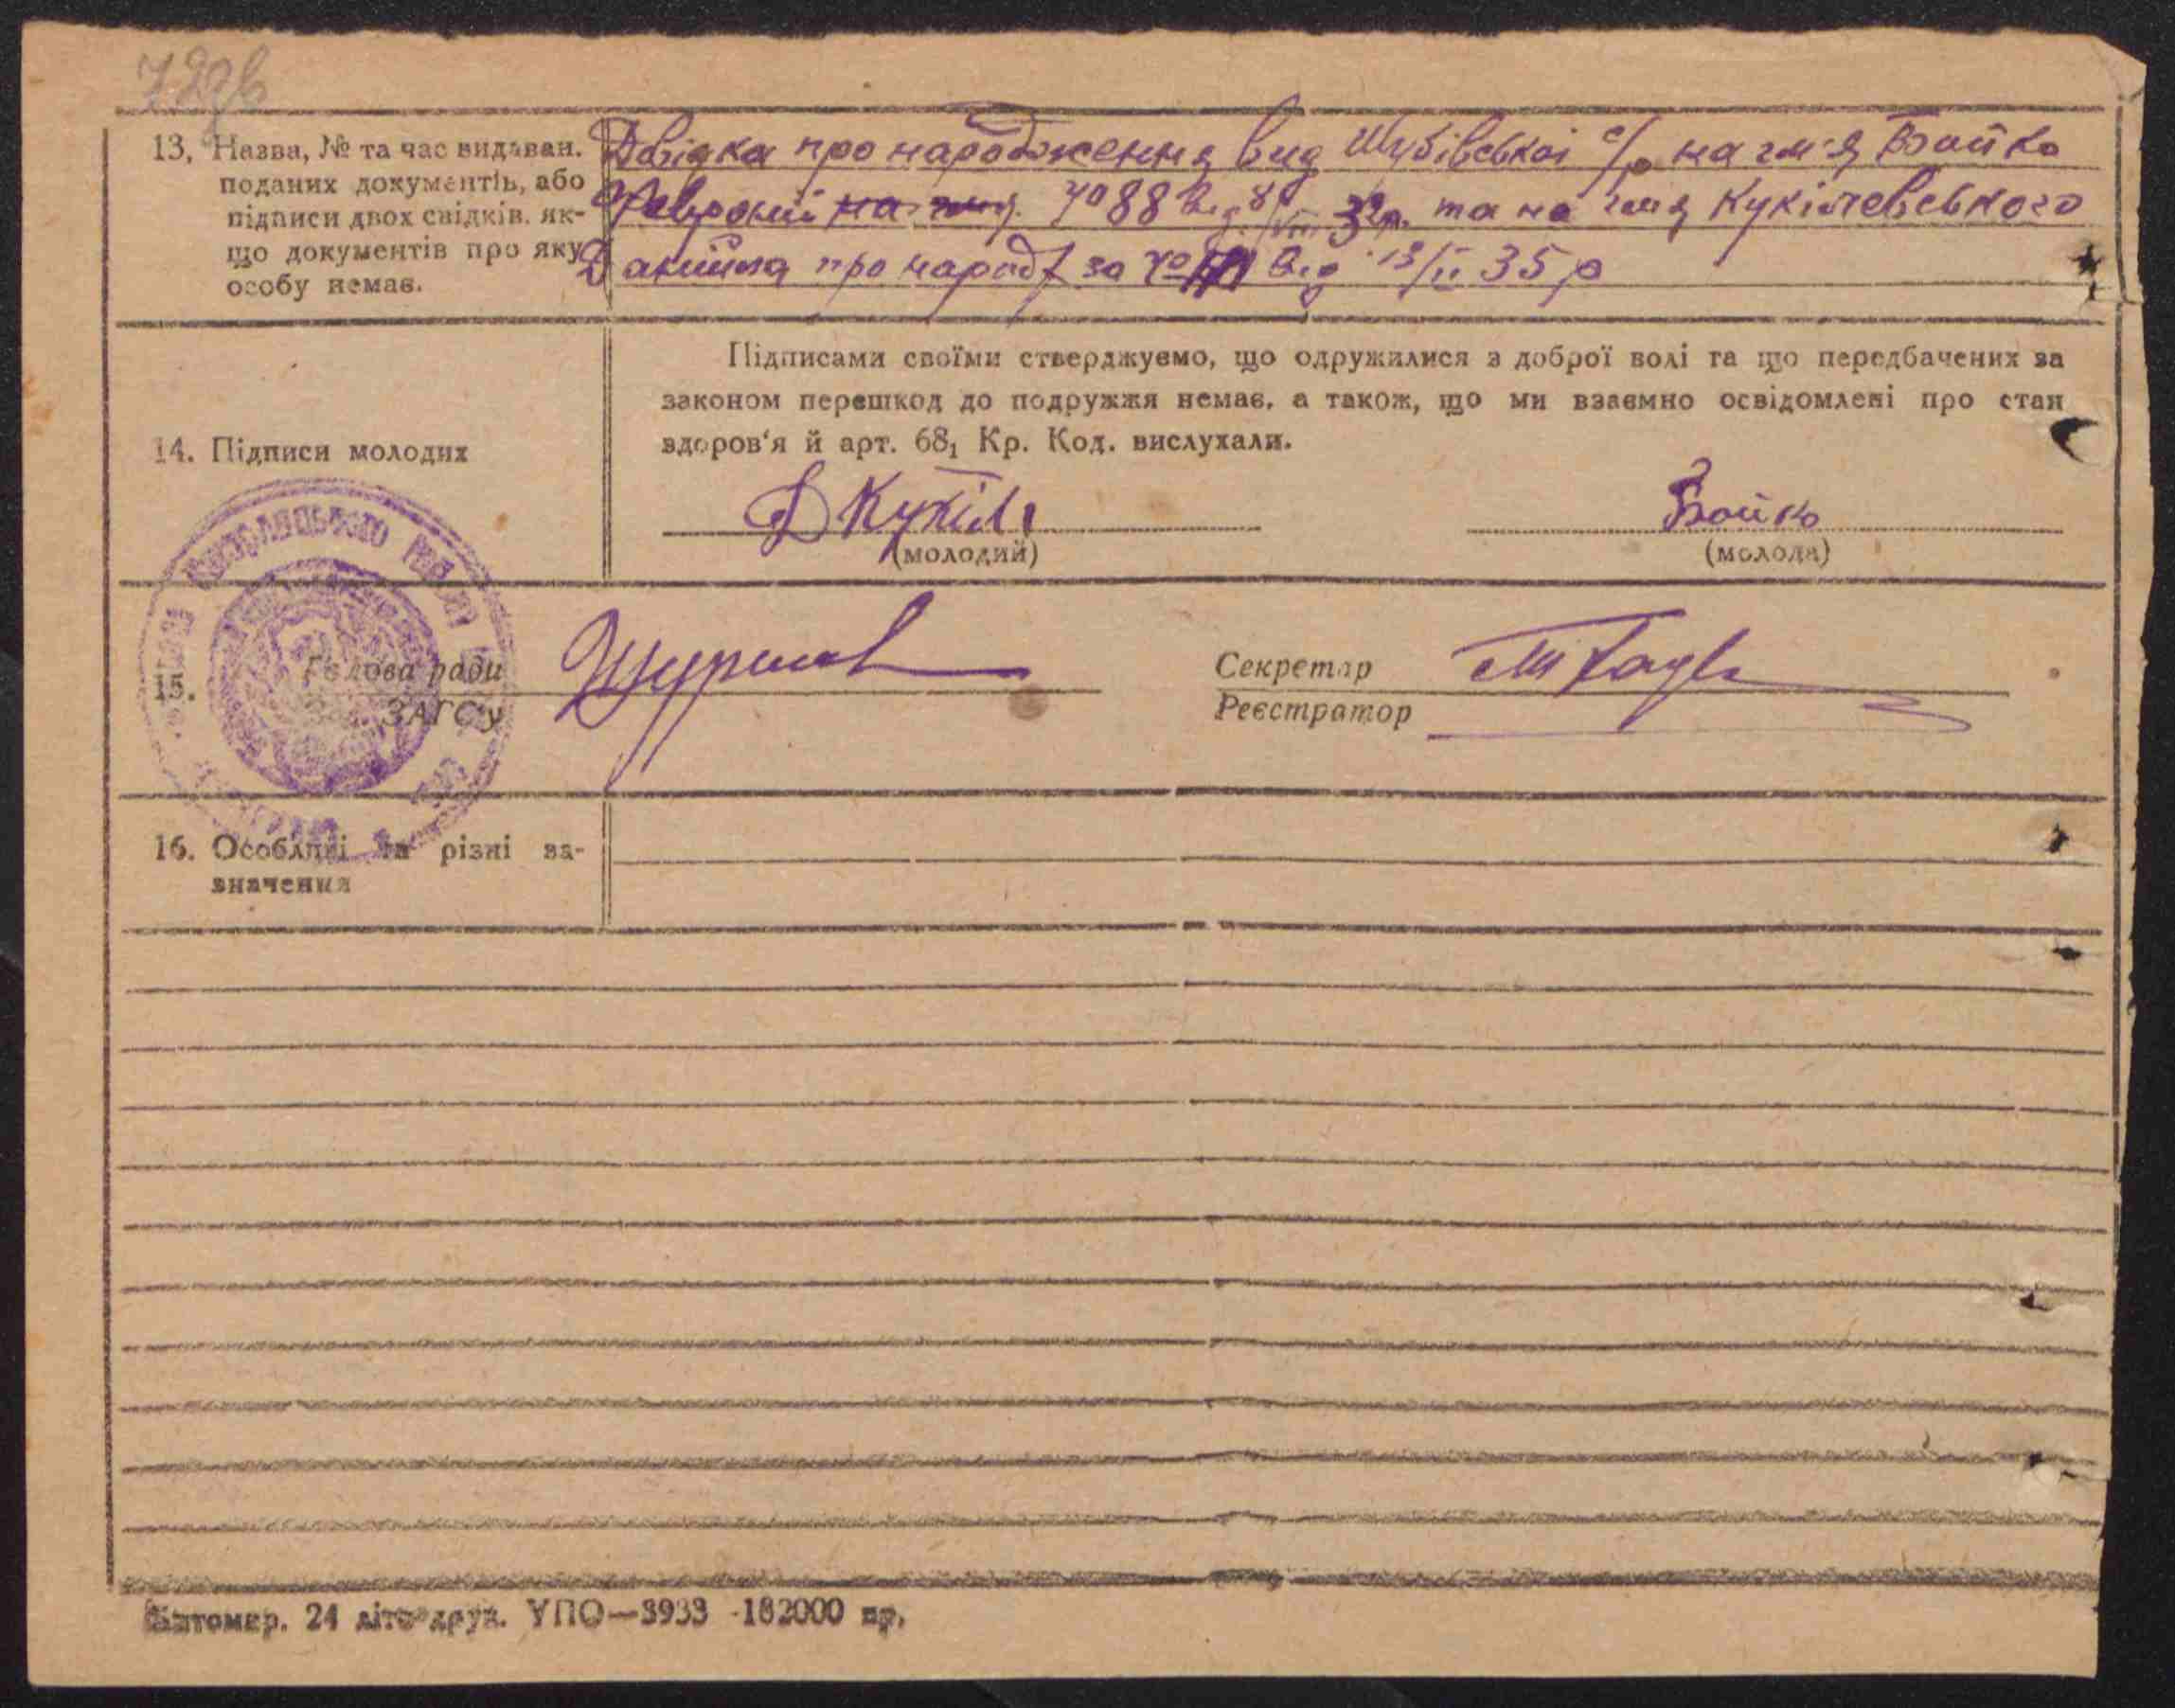 13. Назва, № та час видаван.
поданих документів, або
підписи двох свідків, як-
що документів про яку
особу немає.
Довідка про народження від Шубівської с/р на ім'я Бойко
88 від та на імя Кукілевського
Даніїла про народ за від 13/II 35 р
Підписами своїми стверджуємо, що одружилися з доброї волі та що передбачених за
законом перешкод до подружжя немає, а також, що ми взаємно освідомлені про стан
здоров'я й арт. 68₁ Кр. Код. вислухали.
14. Підписи молодих
Д Кукіл
Бойко
(молодий)
(молода)
15.
Голова ради
ЗАГС'у
Секретар
Реєстратор
16. Особливі та різні за-
значення
Житомир. 24 літо-друк. УПО—3933 -182000 пр.